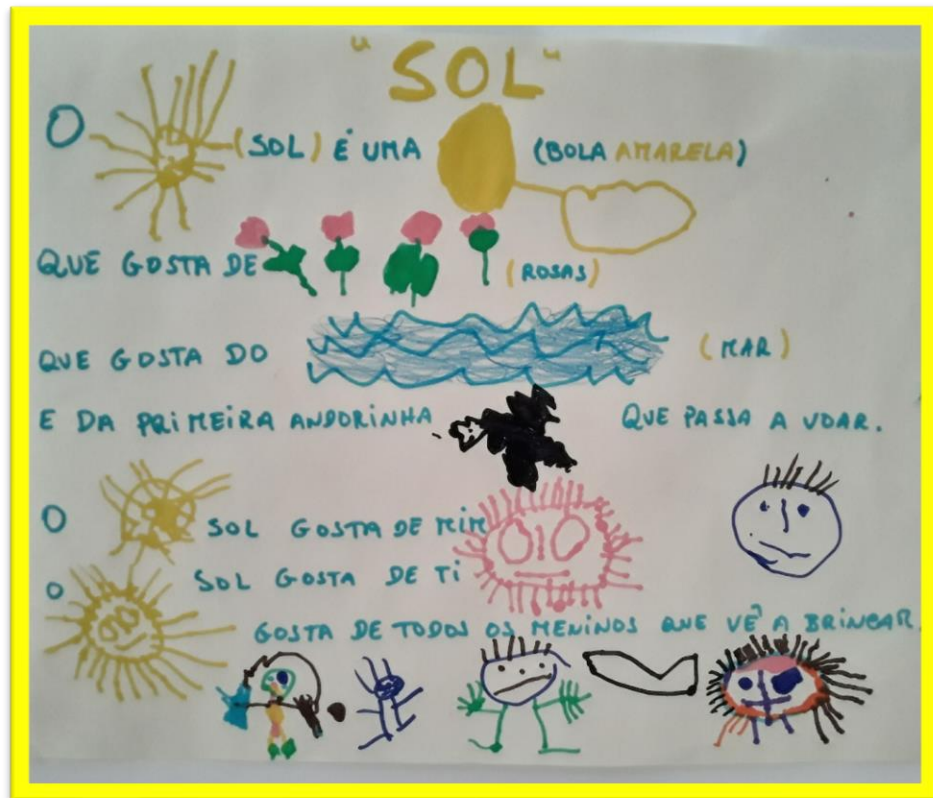 "SOL"
O (SOL) É UMA (BOLA AMARELA)
QUE GOSTA DE (ROSAS)
QUE GOSTA DO (MAR)
E DA PRIMEIRA ANDORINHA QUE PASSA A VOAR.
O SOL GOSTA DE MIM
O SOL GOSTA DE TI
GOSTA DE TODOS OS MENINOS QUE VÊ A BRINCAR.